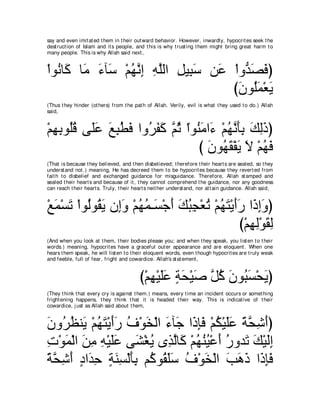 say and even imitated them in their outward behavior. However, inwardly, hypocrites seek the
destruction of Islam and its people, and this is why trusting them might bring great harm to
many people. This is why Allah said next,
﴿فَصَدُّواْ عَن سَبِيلِ اللَّهِ إِنَّهُمْ سَآءَ مَا كَانُواْ
يَعْمَلُونَ﴾
(Thus they hinder (others) from the path of Allah. Verily, evil is what they used to do.) Allah
said,
﴿ذَلِكَ بِأَنَّهُمْ ءَامَنُواْ ثُمَّ كَفَرُوا فَطُبِعَ عَلَى قُلُوبِهِمْ
فَهُمْ لاَ يَفْقَهُونَ ﴾
(That is because they believed, and then disbelieved; therefore their hearts are sealed, so they
understand not.) meaning, He has decreed them to be hypocrites because they reverted from
faith to disbelief and exchanged guidance for misguidance. Therefore, Allah stamped and
sealed their hearts and because of it, they cannot comprehend the guidance, nor any goodness
can reach their hearts. Truly, their hearts neither understand, nor attain guidance. Allah said,
﴿وَإِذَا رَأَيْتَهُمْ تُعْجِبُكَ أَجْسَـمُهُمْ وَإِن يَقُولُواْ تَسْمَعْ
لِقَوْلِهِمْ﴾
(And when you look at them, their bodies please you; and when they speak, you listen to their
words.) meaning, hypocrites have a graceful outer appearance and are eloquent. When one
hears them speak, he will listen to their eloquent words, even though hypocrites are truly weak
and feeble, full of fear, fright and cowardice. Allah's statement,
﴿يَحْسَبُونَ كُلَّ صَيْحَةٍ عَلَيْهِمْ﴾
(They think that every cry is against them.) means, every time an incident occurs or something
frightening happens, they think that it is headed their way. This is indicative of their
cowardice, just as Allah said about them,
﴿أَشِحَّةً عَلَيْكُمْ فَإِذَا جَآءَ الْخَوْفُ رَأَيْتَهُمْ يَنظُرُونَ
إِلَيْكَ تَدورُ أَعْيُنُهُمْ كَالَّذِى يُغْشَى عَلَيْهِ مِنَ الْمَوْتِ
فَإِذَا ذَهَبَ الْخَوْفُ سَلَقُوكُم بِأَلْسِنَةٍ حِدَادٍ أَشِحَّةً